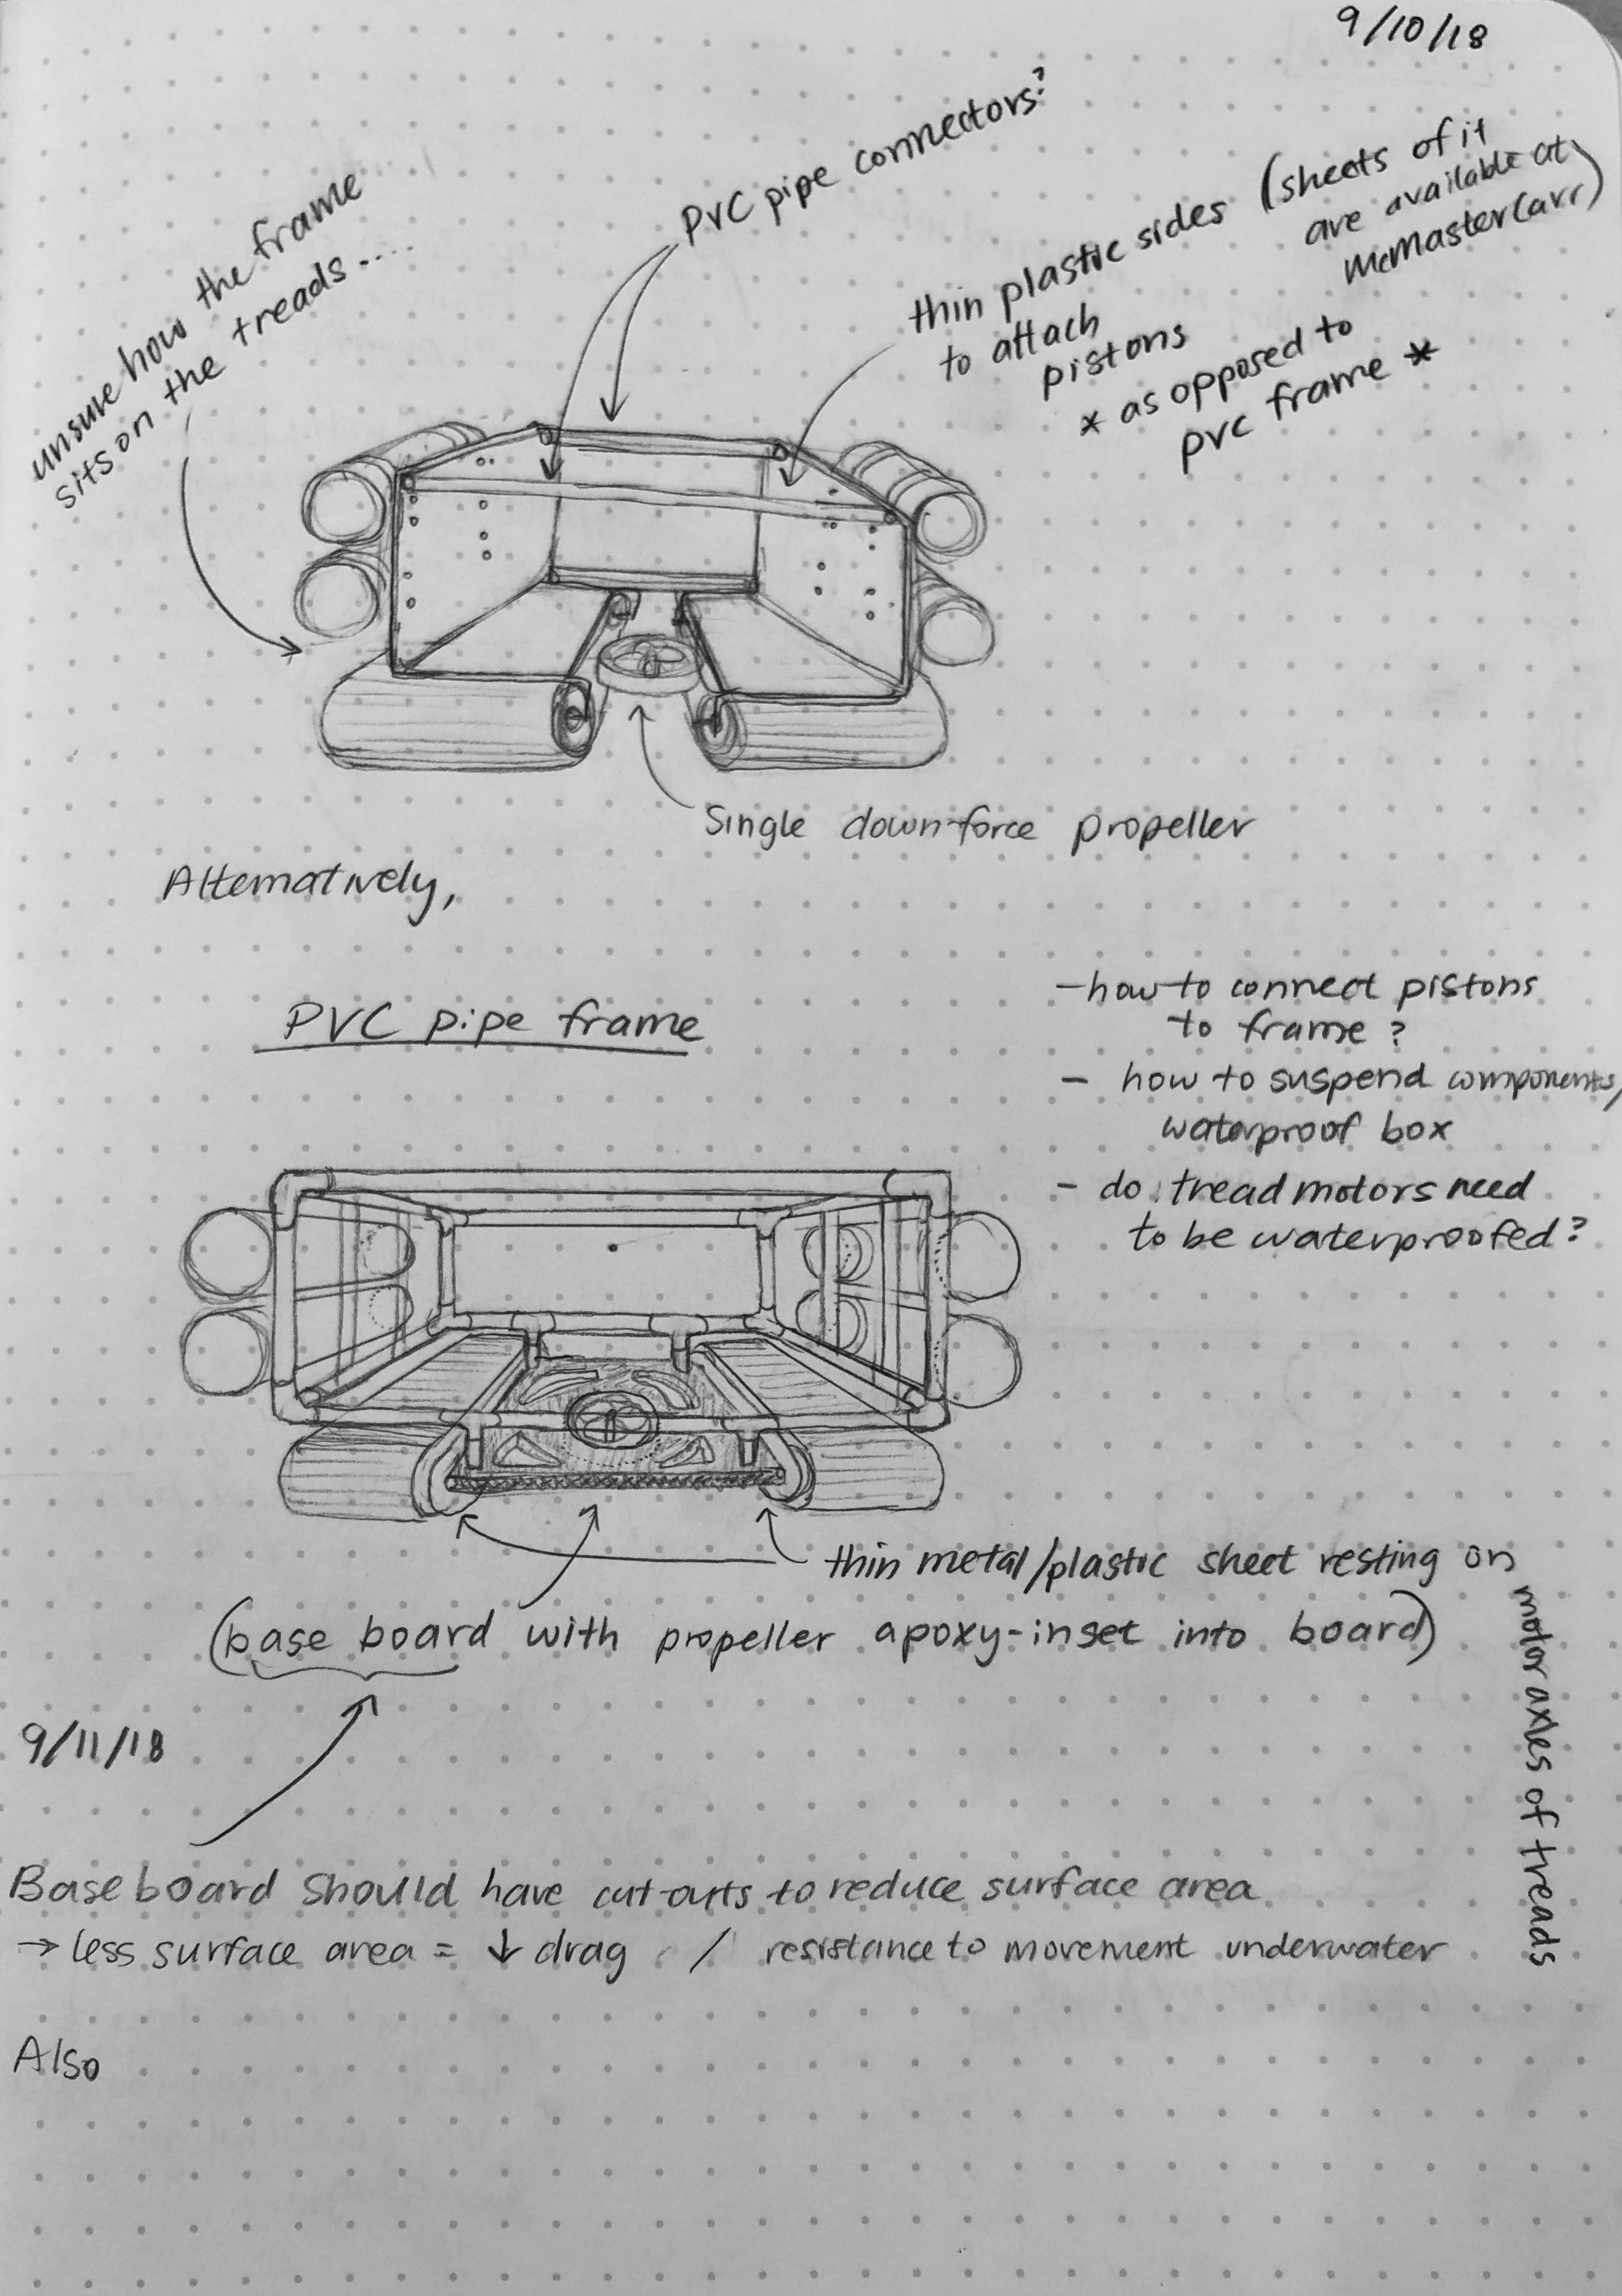 9/10/18
PVC pipe connectors?
unsure how the frame
sits on the treads....
thin plastic sides (sheets of it
are available at
McMasterCarr)
to attach
pistons
* as opposed to
PVC frame *
Single down-force propeller
Alternatively,
PVC pipe frame
- how to connect pistons
to frame?
- how to suspend components/
waterproof box
- do tread motors need
to be waterproofed?
thin metal/plastic sheet resting on
motor axles of treads
(base board with propeller apoxy-inset into board)
9/11/18
Base board should have cut-outs to reduce surface area
→ less surface area = ↓ drag / resistance to movement underwater
Also